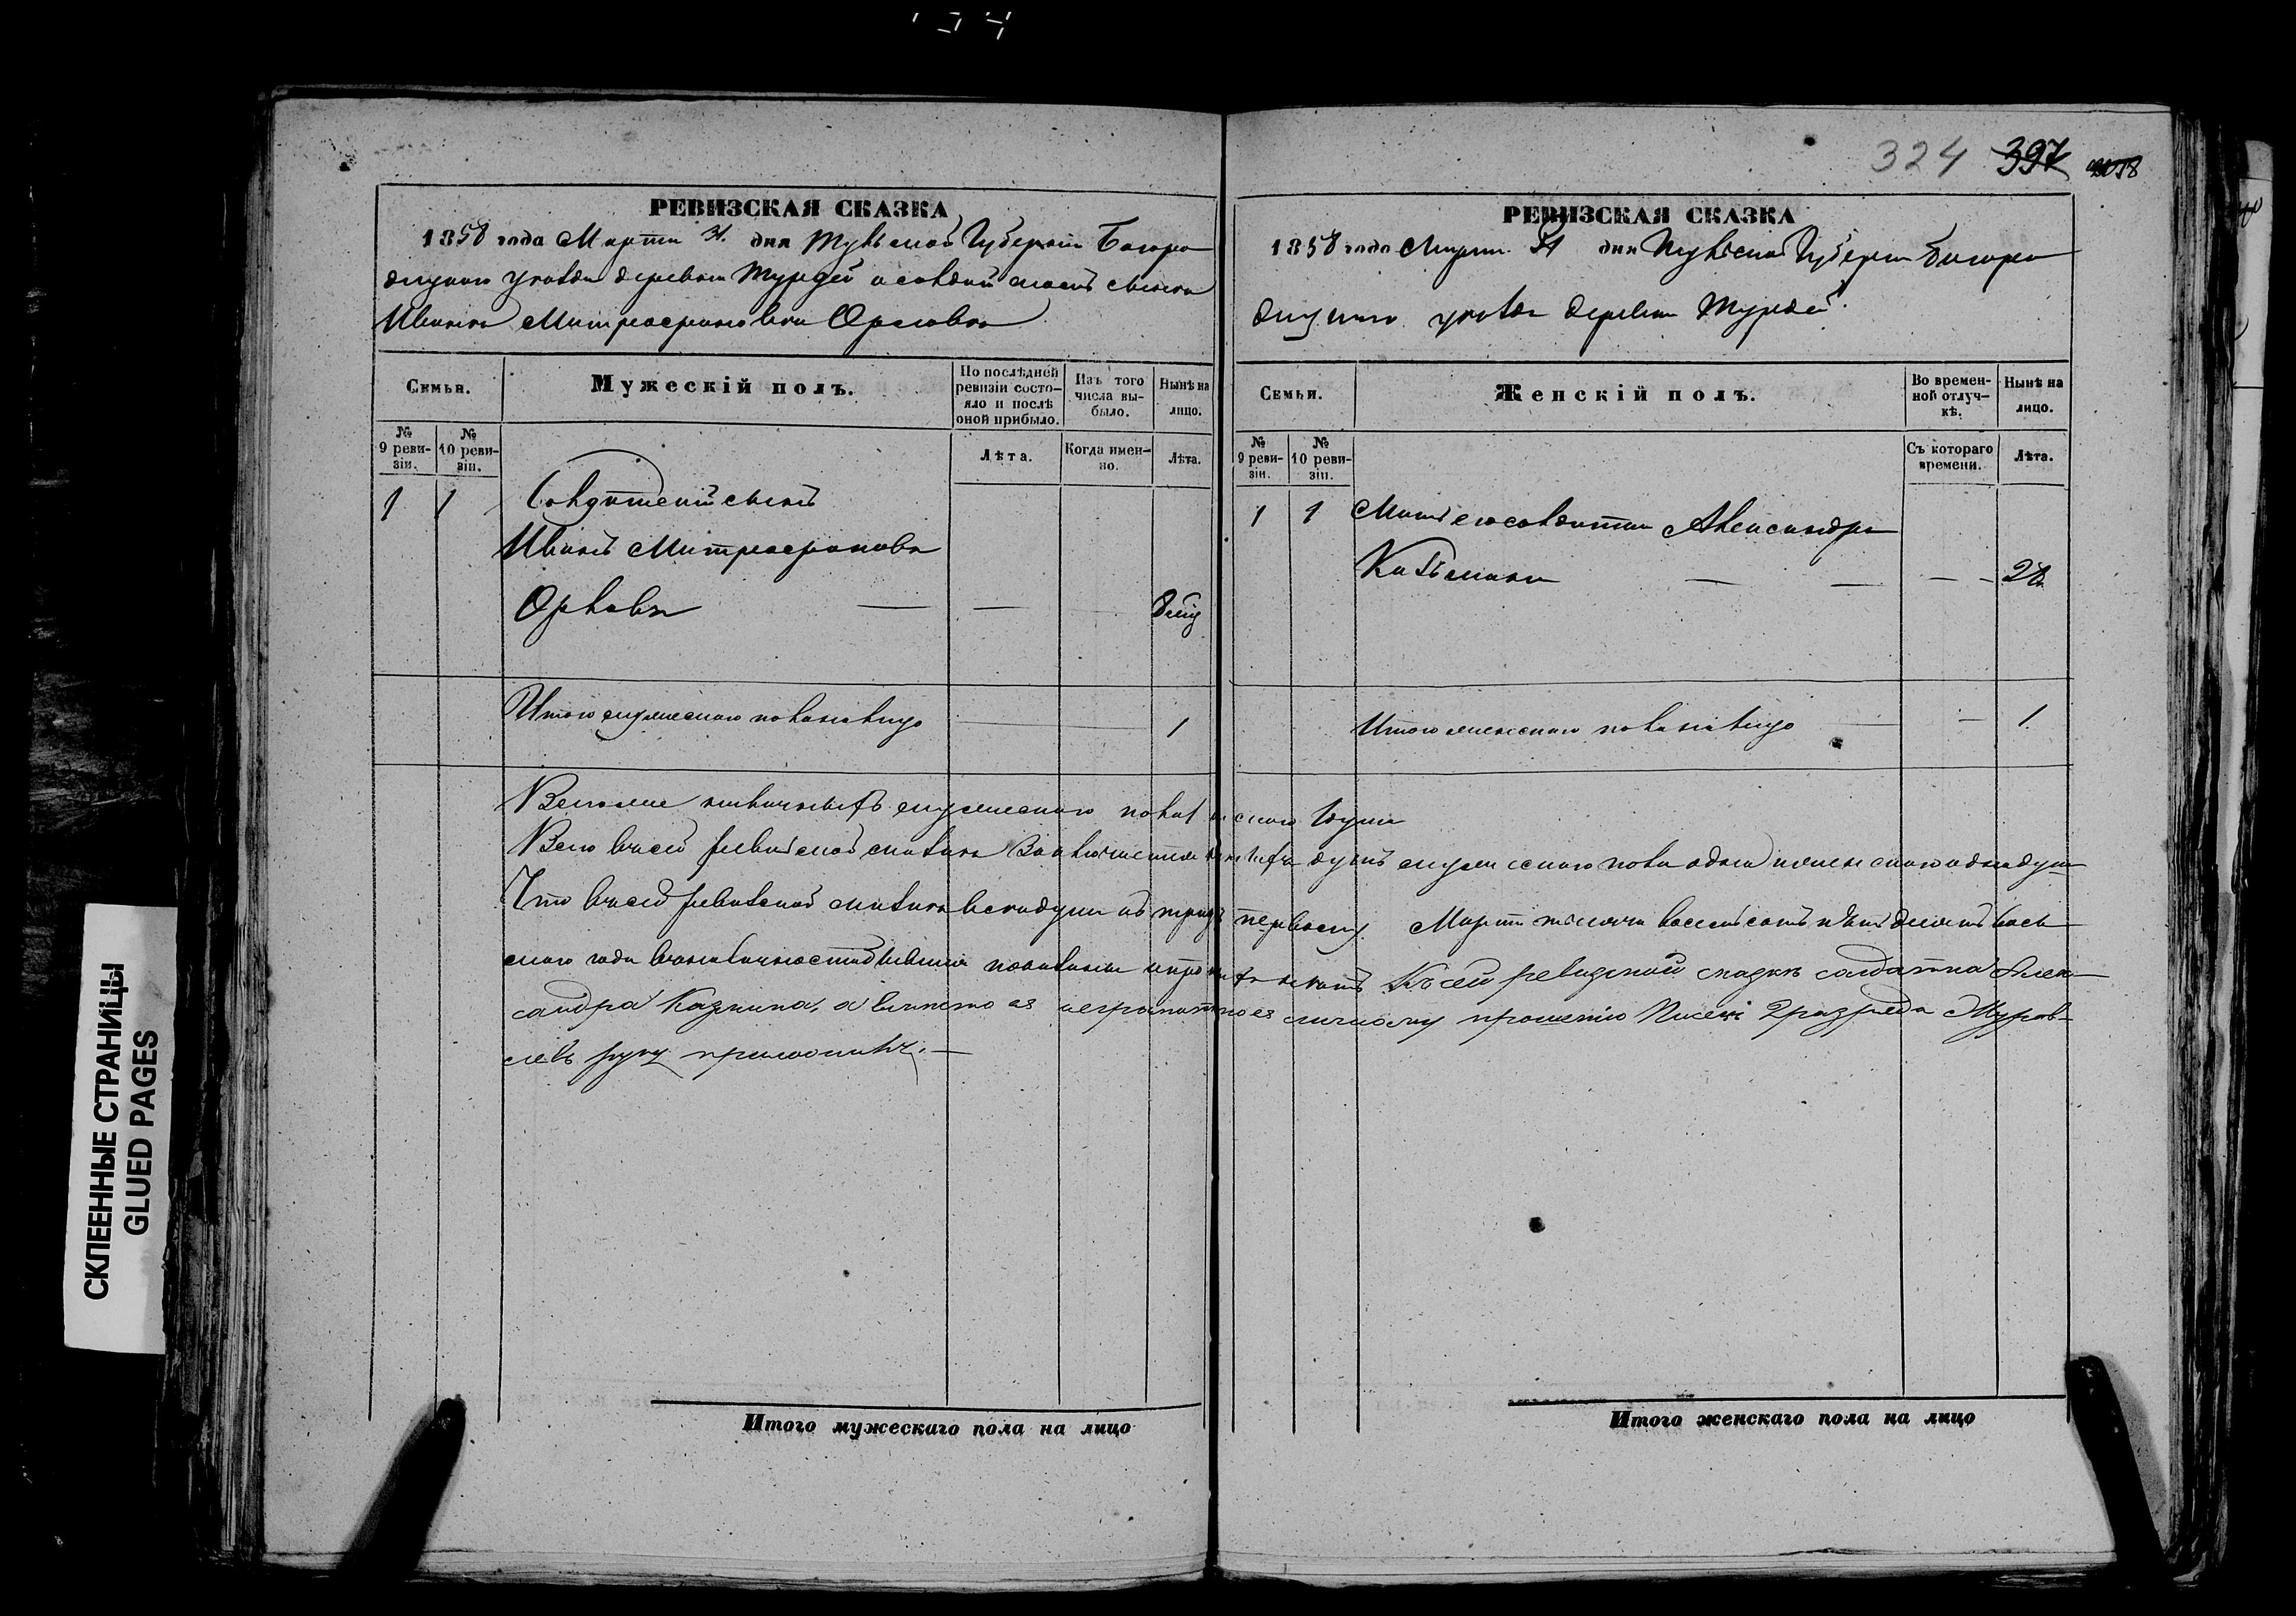 324 397
РЕВИЗСКАЯ СКАЗКА
1858 года Марта 31. дня Тульской Губернии Богоро
дицкаго уезда деревни Турдей о солдатском сыне
Иване Митрофанове Орлове
Семьи.
Мужескій полъ.
По послѣдней ревизіи состо-
яло и послѣ оной прибыло.
Изъ того числа вы-
было.
Нынѣ на лицо.
№ 9 реви-
зіи.
№ 10 реви-
зіи.
Лѣта.
Когда имен-
но.
Лѣта.
1 1 Солдатскій сынъ
Иванъ Митрофановъ
Орловъ — —
Итого мужескаго пола налицо 1
РЕВИЗСКАЯ СКАЗКА
1858 года Марта 31 дня Тульской Губернии Богоро
дицкаго уезда деревни Турдей.
Семьи.
Женскій полъ.
Во времен-
ной отлуч-
кѣ.
Нынѣ на лицо.
№ 9 реви-
зіи.
№ 10 реви-
зіи.
Съ котораго времени.
Лѣта.
1 1 Мать его солдатка Александра
28
Итого женскаго пола налицо — 1
мужескаго пола 1 души
Всего в сей ревизской сказке заключается душъ мужескаго пола одна и женскаго одна душа
Что в сей ревизской сказке все души первому Марта тысяча восемьсотъ пятьдесятъ вось
маго года Къ сей ревизской сказкѣ солдатка Алек-
сандра Казмина, а вместо ея неграмотной по ея личному прошению Писецъ 2 разряда Журов-
левъ руку приложилъ. —
Итого мужескаго пола на лицо
Итого женскаго пола на лицо
СКЛЕЕННЫЕ СТРАНИЦЫ
GLUED PAGES